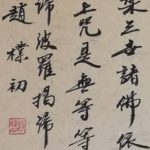 槃三世諸佛依
上咒是無等等
諦波羅揭諦
趙樸初